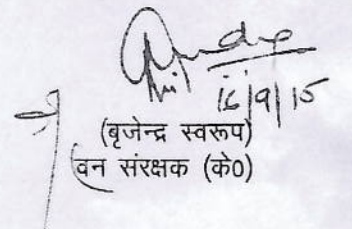 16/9/15
(बृजेन्द्र स्वरूप)
वन संरक्षक (के0)